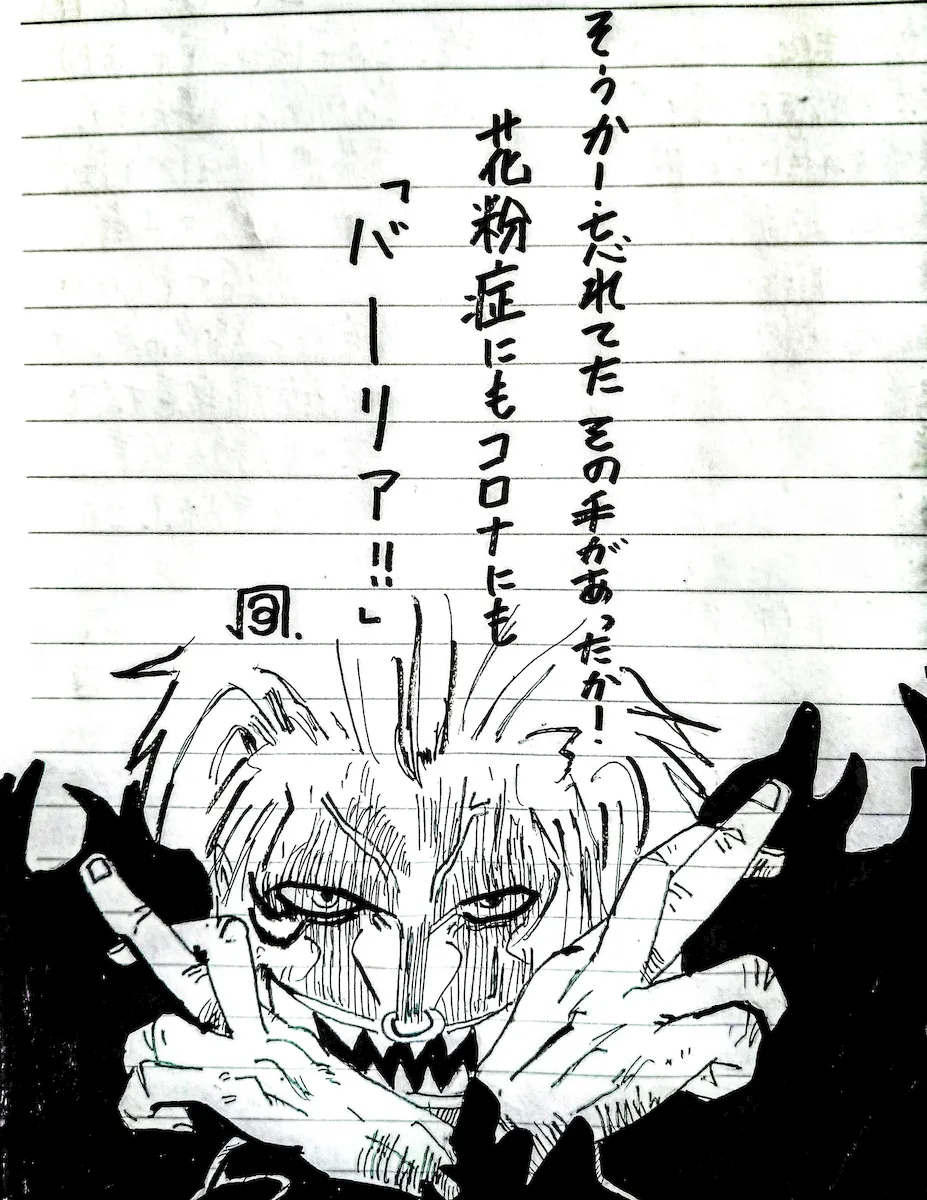 そうかー・忘れてたその手があったかー!
花粉症にもコロナにも
「バーリア!!」